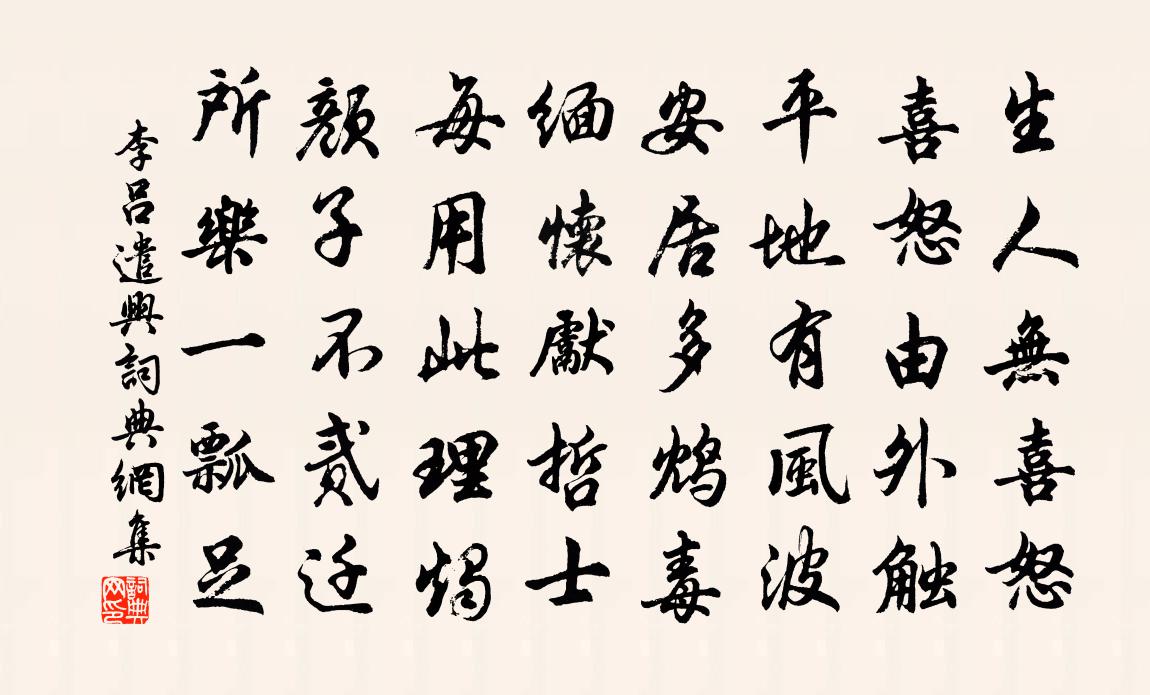 生人無喜怒
喜怒由外触
平地有風波
安居多鸩毒
緬懷獻哲士
每用此理燭
顏子不貳迁
所樂一瓢足
李呂遣興詞典網集
詞典网印